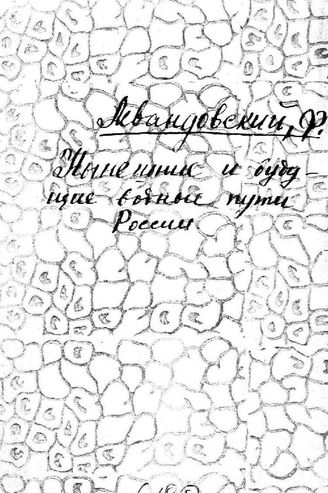 Левандовский, Ф.
Нынешние и буду-
щие водные пути
России